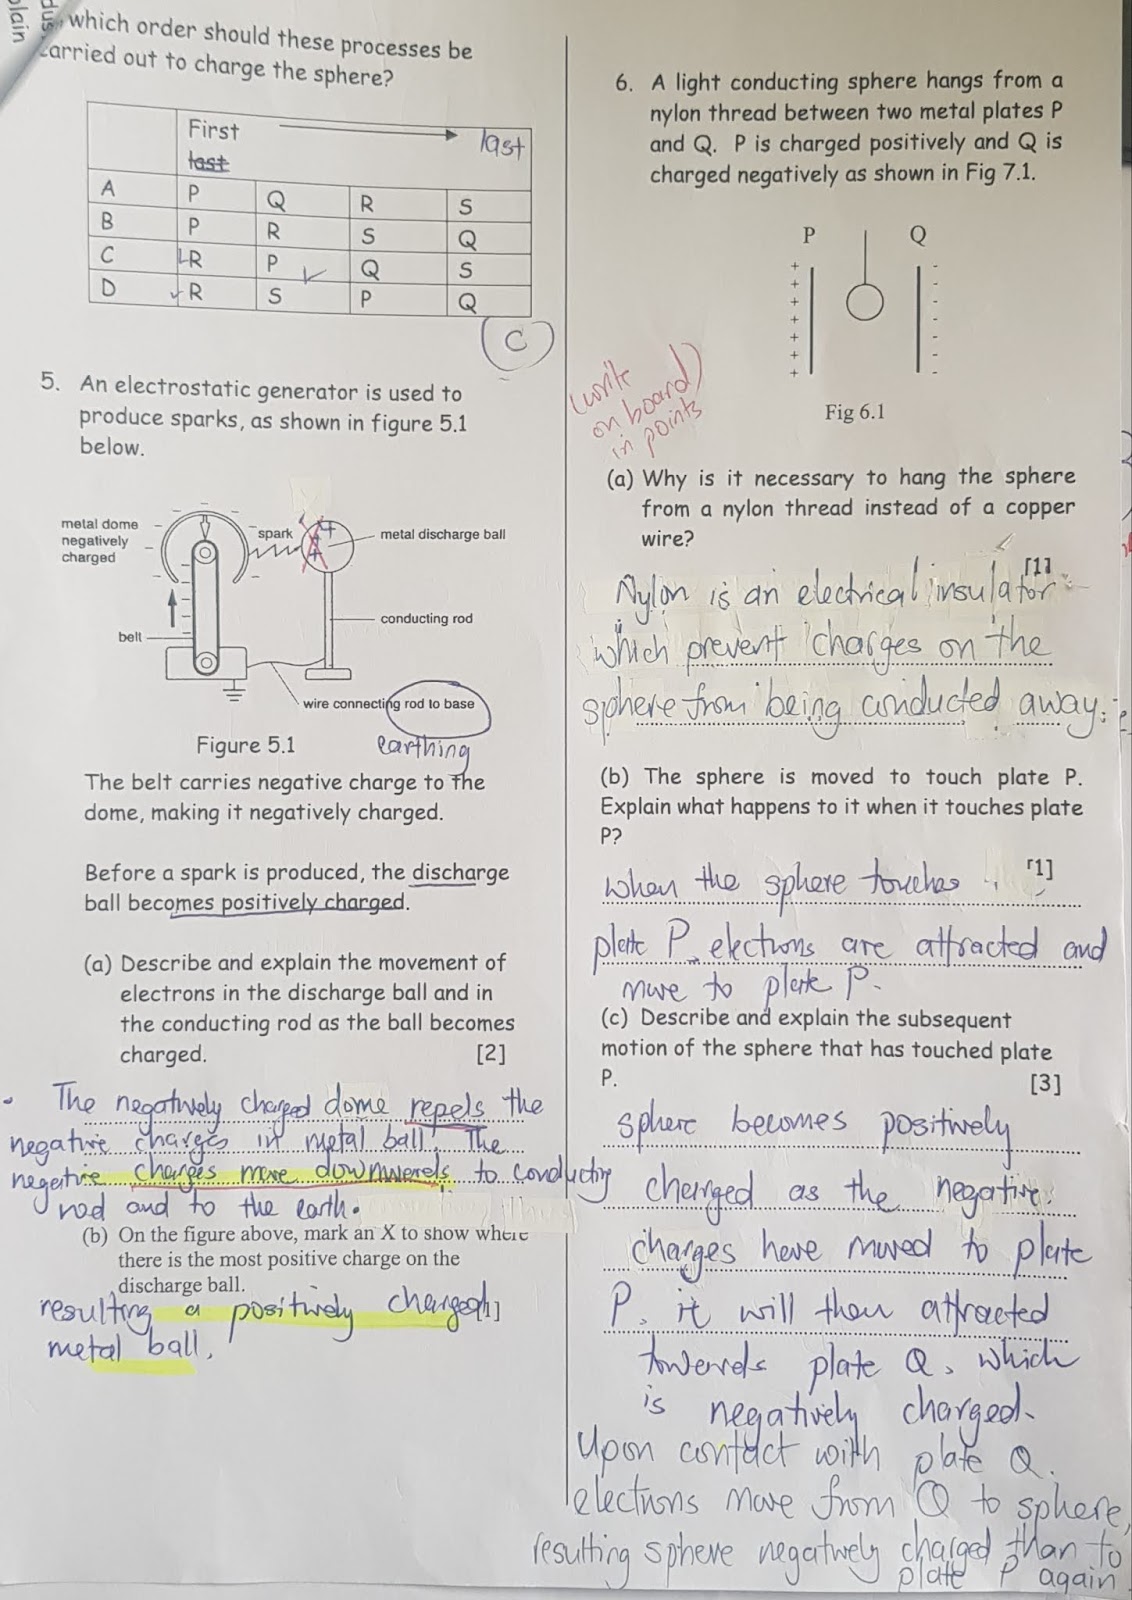 plain
dus
which order should these processes be
carried out to charge the sphere?
First last
last
A P Q R S
B P R S Q
C R P Q S
D R S P Q
C
5. An electrostatic generator is used to
produce sparks, as shown in figure 5.1
below.
metal dome
negatively
charged
spark
metal discharge ball
conducting rod
belt
wire connecting rod to base
Figure 5.1
earthing
The belt carries negative charge to the
dome, making it negatively charged.
Before a spark is produced, the discharge
ball becomes positively charged.
(a) Describe and explain the movement of
electrons in the discharge ball and in
the conducting rod as the ball becomes
charged. [2]
The negatively charged dome repels the
negative charges in metal ball. The
negative charges move downwards to conducting
rod and to the earth.
(b) On the figure above, mark an X to show where
there is the most positive charge on the
discharge ball.
resulting a positively charged [1]
metal ball.
6. A light conducting sphere hangs from a
nylon thread between two metal plates P
and Q. P is charged positively and Q is
charged negatively as shown in Fig 7.1.
P Q
Fig 6.1
(write
on board)
in points
(a) Why is it necessary to hang the sphere
from a nylon thread instead of a copper
wire?
[1]
Nylon is an electrical insulator
which prevent charges on the
sphere from being conducted away.
(b) The sphere is moved to touch plate P.
Explain what happens to it when it touches plate
P?
[1]
when the sphere touches
plate P, electrons are attracted and
move to plate P.
(c) Describe and explain the subsequent
motion of the sphere that has touched plate
P. [3]
sphere becomes positively
charged as the negative
charges have moved to plate
P. it will then attracted
towards plate Q, which
is negatively charged.
Upon contact with plate Q.
electrons move from Q to sphere,
resulting sphere negatively charged than to
plate P again